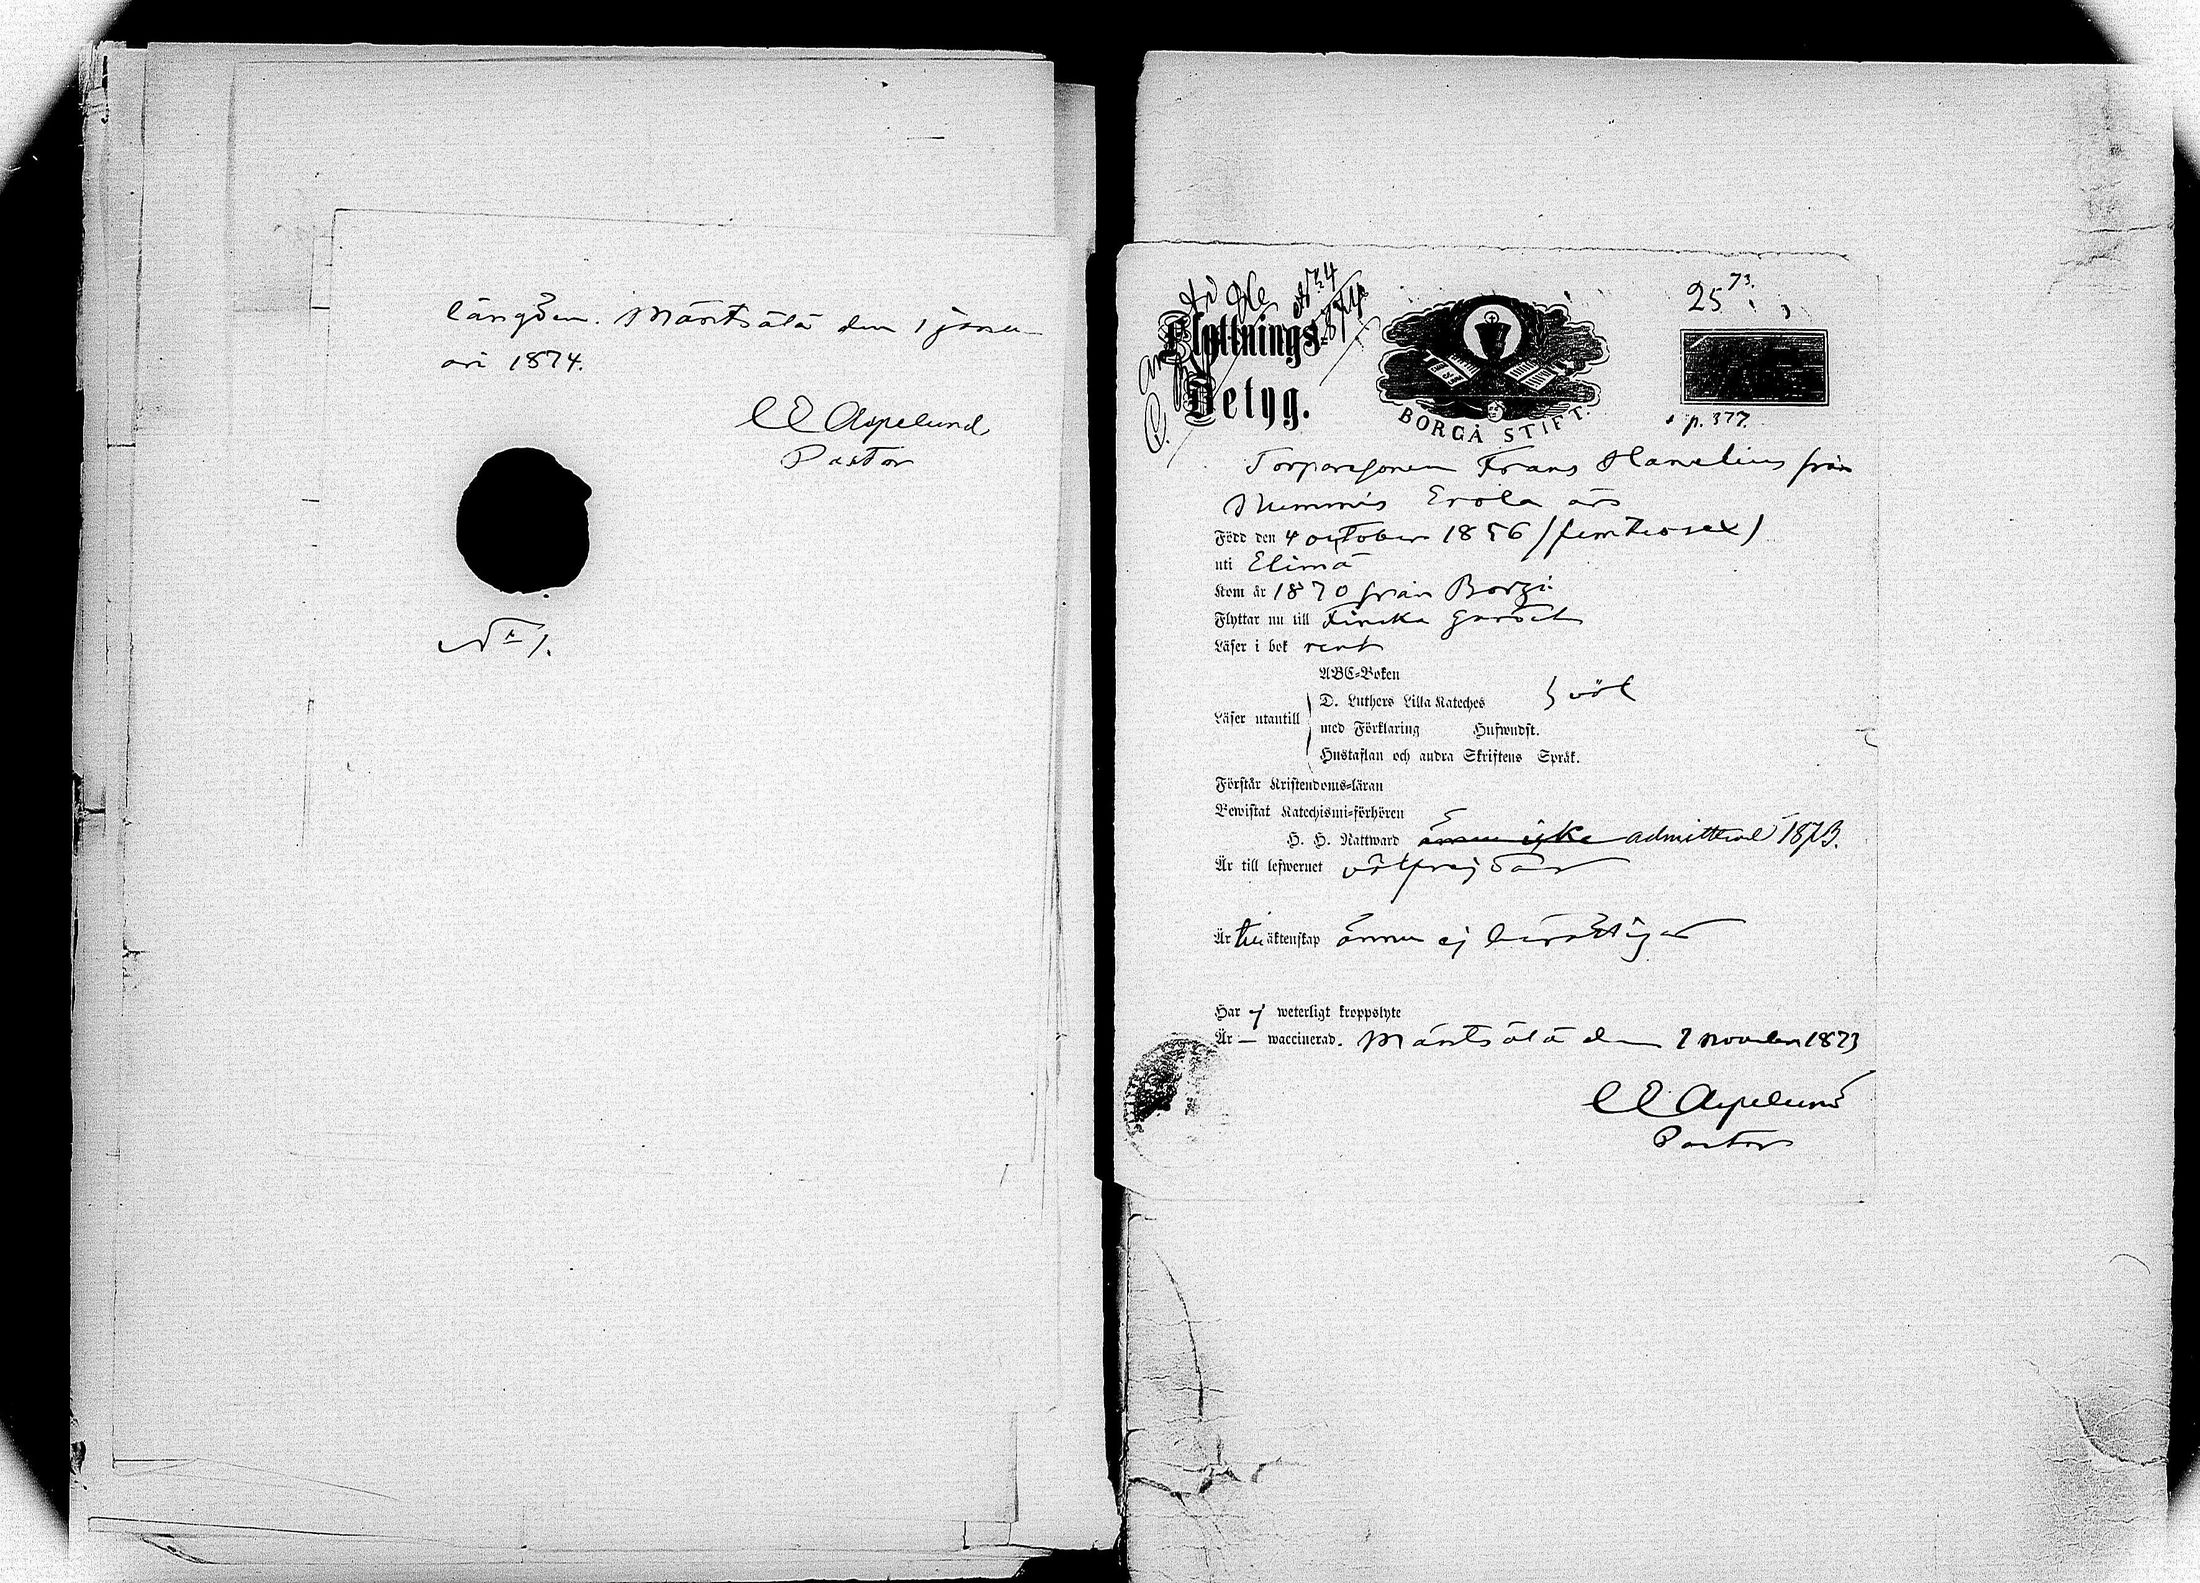 längden. Mäntsälä den 1 janu-
ari 1874.
C E Aspelund
Pastor
No 1.
No 4
1874
25 73.
Flyttnings-
Betyg.
BORGÅ STIFT.
p. 377.
Torparesonen Frans Hamelius från
Nummis Erola är
Född den 4 october 1856 (femtiosex)
uti Elimä
Kom år 1870 från Borgå
Flyttar nu till Finska gardet
Läser i bok rent
ABC-Boken
D. Luthers Lilla Kateches } väl
Läser utantill
med Förklaring Hufwudst.
Hustaflan och andra Skriftens Språk.
Förstår Kristendoms-läran
Bewistat Katechismi-förhören
H. H. Nattward ännu icke admitterad 1873.
Är till lefwernet välfrejdad
Är till äktenskap ännu ej berättigad
Har ej weterligt kroppslyte
Är — waccinerad. Mäntsälä den 7 november 1873
C E Aspelund
Pastor